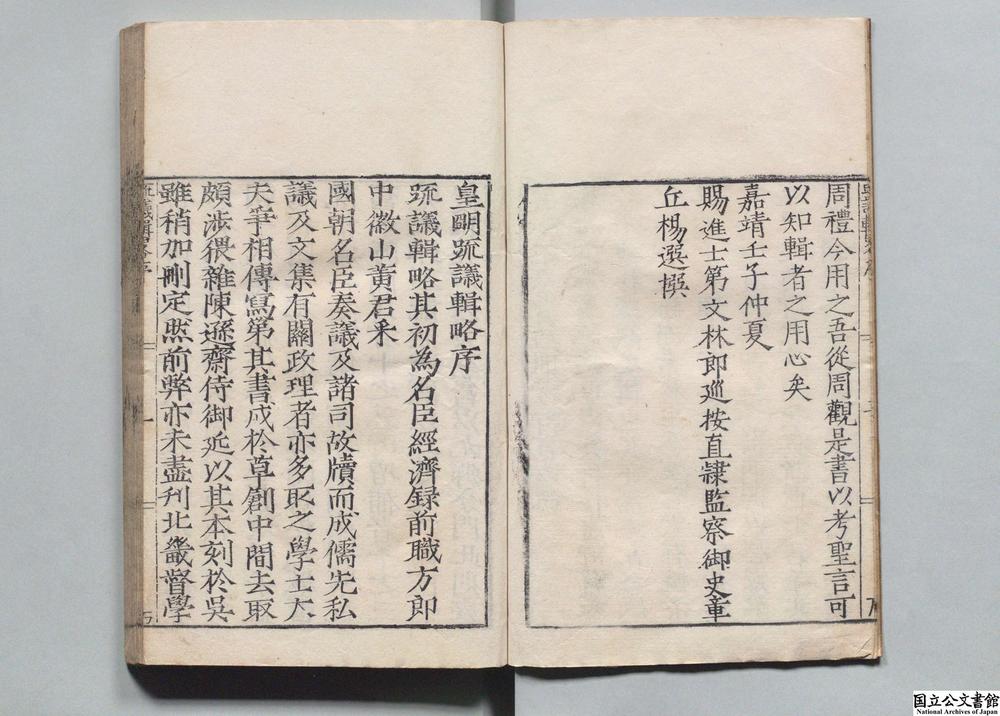 周禮今用之吾從周觀是書以考聖言可
以知輯者之用心矣
嘉靖壬子仲夏
賜進士第文林郎巡按直隸監察御史章
丘楊選撰
皇明疏議輯略序
疏議輯略其初為名臣經濟録前職方郎
中徽山黄君采
國朝名臣奏議及諸司故牘而成儒先私
議及文集有關政理者亦多取之學士大
夫爭相傳寫第其書成於草創中間去取
頗涉猥雜陳遜齋侍御近以其本刻於吳
雖稍加刪定然前弊亦未盡刋北畿督學
国立公文書館
National Archives of Japan